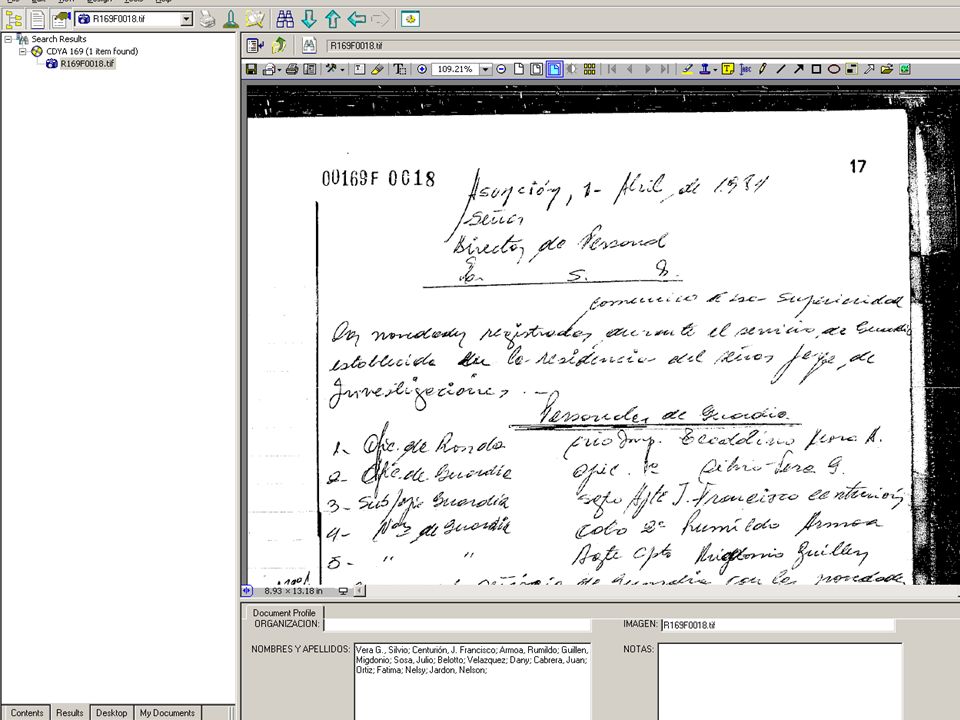 R169F0018.tif
Search Results
CDYA 169 (1 item found)
R169F0018.tif
R169F0018.tif
109.21%
17
00169F 0018
Asunción, 1- Abril, de 1984
Señor
Director de Personal
E. S. D.
comunico a esa Superioridad
las novedades registradas, durante el servicio, de Guardia
establecida en la residencia del señor Jefe, de
Investigaciones. -
Personales de Guardia.
1- Ofic. de Ronda
2- Ofic. de Guardia Ofic. Silvio Vera G.
3- Sub Jefe Guardia Sgto Ayte J. Francisco Centurión,
4- Nos de Guardia Cabo 2º Rumildo Armoa
5- " " Agte Cpto Migdonio Guillen
de Guardia con las novedades
8.93 × 13.18 in
Document Profile
ORGANIZACION:
IMAGEN: R169F0018.tif
NOMBRES Y APELLIDOS: Vera G., Silvio; Centurión, J. Francisco; Armoa, Rumildo; Guillen,
Migdonio; Sosa, Julio; Belotto; Velazquez; Dany; Cabrera, Juan;
Ortiz; Fatima; Nelsy; Jardon, Nelson;
NOTAS:
Contents Results Desktop My Documents